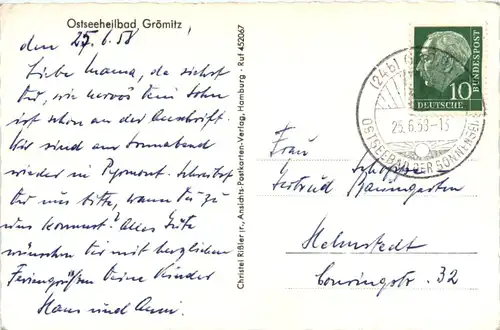 Ostseeheilbad Grömitz
den 25.6.58
Liebe Mama, da siehst
Du, wie nervös Dein Sohn
ist schon an der Anschrift.
Wir sind am Sonnabend
wieder in Pyrmont. Schreibst
Du uns bitte, wann Du zu
uns kommst? Alles Gute
wünschen Dir mit herzlichen
Feriengrüßen Deine Kinder
Hans und Anni.
Christel Rißler jr., Ansichts-Postkarten-Verlag, Hamburg · Ruf 452067
(24b)
25.6.58-15
OSTSEEBAD DER SONNENSEITE
DEUTSCHE
BUNDESPOST
10
Frau
Gertrud Baumgarten
Helmstedt
Conringstr. 32